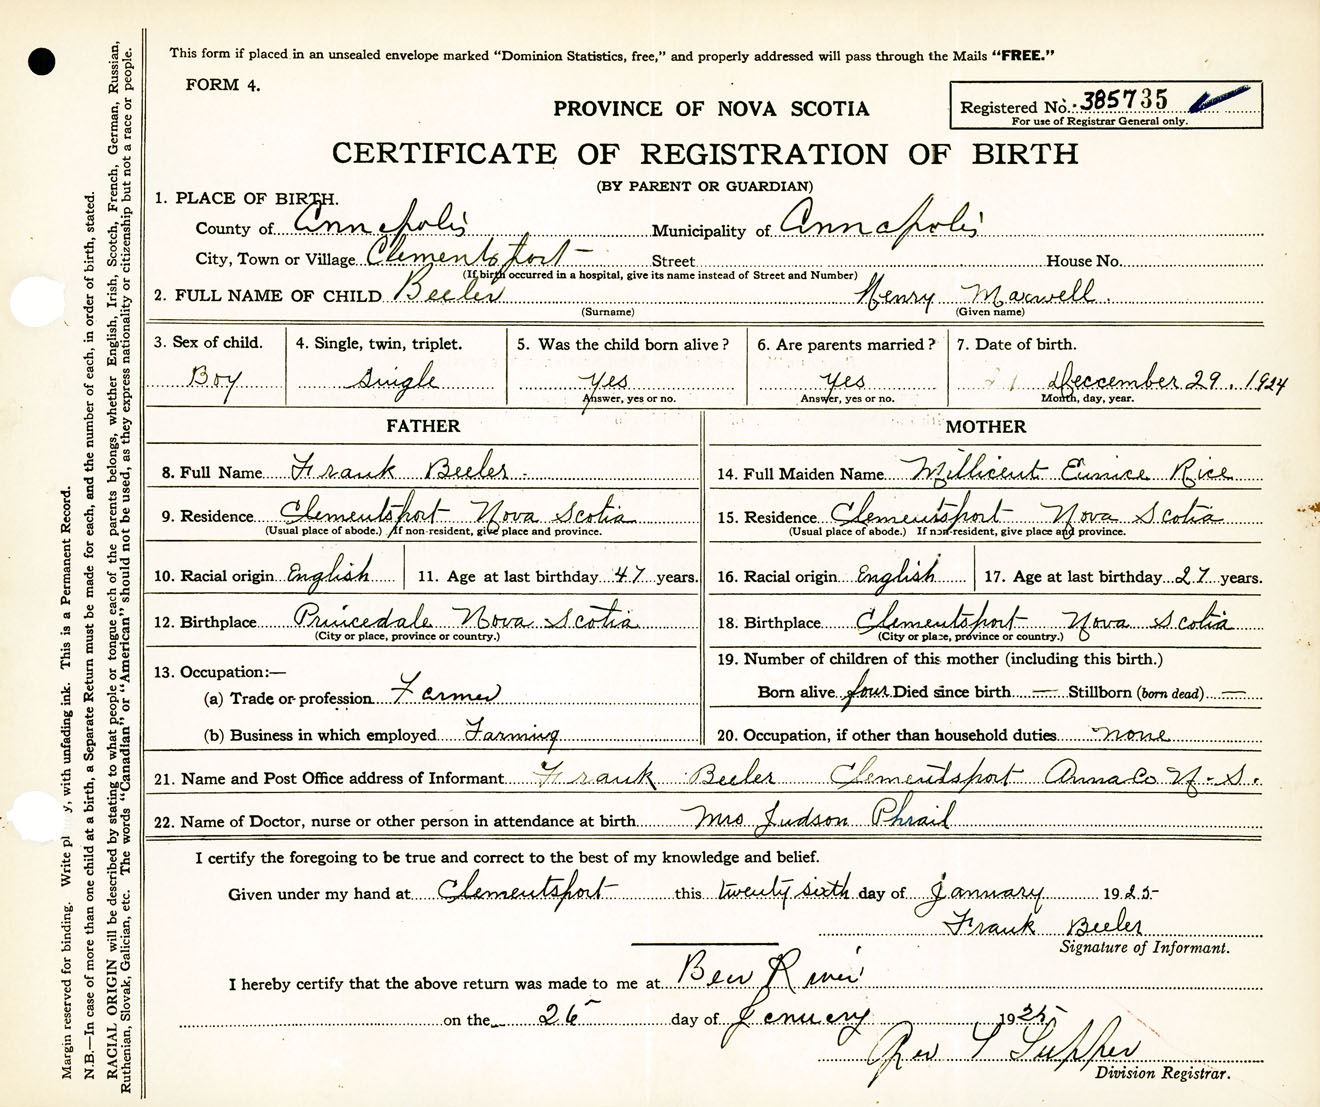 This form if placed in an unsealed envelope marked "Dominion Statistics, free," and properly addressed will pass through the Mails "FREE."
FORM 4.
PROVINCE OF NOVA SCOTIA
Registered No. 385735
For use of Registrar General only.
CERTIFICATE OF REGISTRATION OF BIRTH
(BY PARENT OR GUARDIAN)
1. PLACE OF BIRTH.
County of Annapolis Municipality of Annapolis
City, Town or Village Clementsport Street House No.
(If birth occurred in a hospital, give its name instead of Street and Number)
2. FULL NAME OF CHILD Beeler Henry Maxwell.
(Surname) (Given name)
3. Sex of child. 4. Single, twin, triplet. 5. Was the child born alive? 6. Are parents married? 7. Date of birth.
Boy Single Yes Yes December 29. 1924
Answer, yes or no. Answer, yes or no. Month, day, year.
FATHER MOTHER
8. Full Name Frank Beeler. 14. Full Maiden Name Millicent Eunice Rice
9. Residence Clementsport Nova Scotia 15. Residence Clementsport Nova Scotia
(Usual place of abode.) If non-resident, give place and province. (Usual place of abode.) If non-resident, give place and province.
10. Racial origin English 11. Age at last birthday 47 years. 16. Racial origin English 17. Age at last birthday 27 years.
12. Birthplace Princedale Nova Scotia 18. Birthplace Clementsport Nova Scotia
(City or place, province or country.) (City or place, province or country.)
13. Occupation:— 19. Number of children of this mother (including this birth.)
(a) Trade or profession Farmer Born alive four Died since birth — Stillborn (born dead) —
(b) Business in which employed Farming 20. Occupation, if other than household duties none
21. Name and Post Office address of Informant Frank Beeler Clementsport Anna Co N-S.
22. Name of Doctor, nurse or other person in attendance at birth Mrs Judson Phrail
I certify the foregoing to be true and correct to the best of my knowledge and belief.
Given under my hand at Clementsport this twenty sixth day of January 1925
Frank Beeler
Signature of Informant.
I hereby certify that the above return was made to me at Bear River
on the 26 day of January 1925
Rev
Division Registrar.
Margin reserved for binding. Write pl y, with unfading ink. This is a Permanent Record.
N.B.—In case of more than one child at a birth, a Separate Return must be made for each, and the number of each, in order of birth, stated.
RACIAL ORIGIN will be described by stating to what people or tongue each of the parents belongs, whether English, Irish, Scotch, French, German, Russian,
Ruthenian, Slovak, Galician, etc. The words "Canadian" or "American" should not be used, as they express nationality or citizenship but not a race or people.